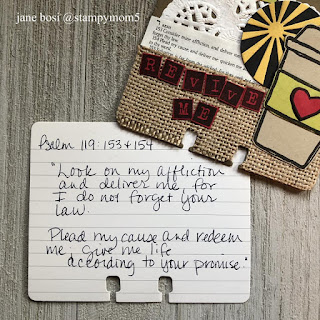 jane bosi @stampymom5
REVIVE
ME
Psalm 119:153+154
"Look on my affliction
and deliver me, for
I do not forget your
law.
Plead my cause and redeem
me; give me life
according to your promise."